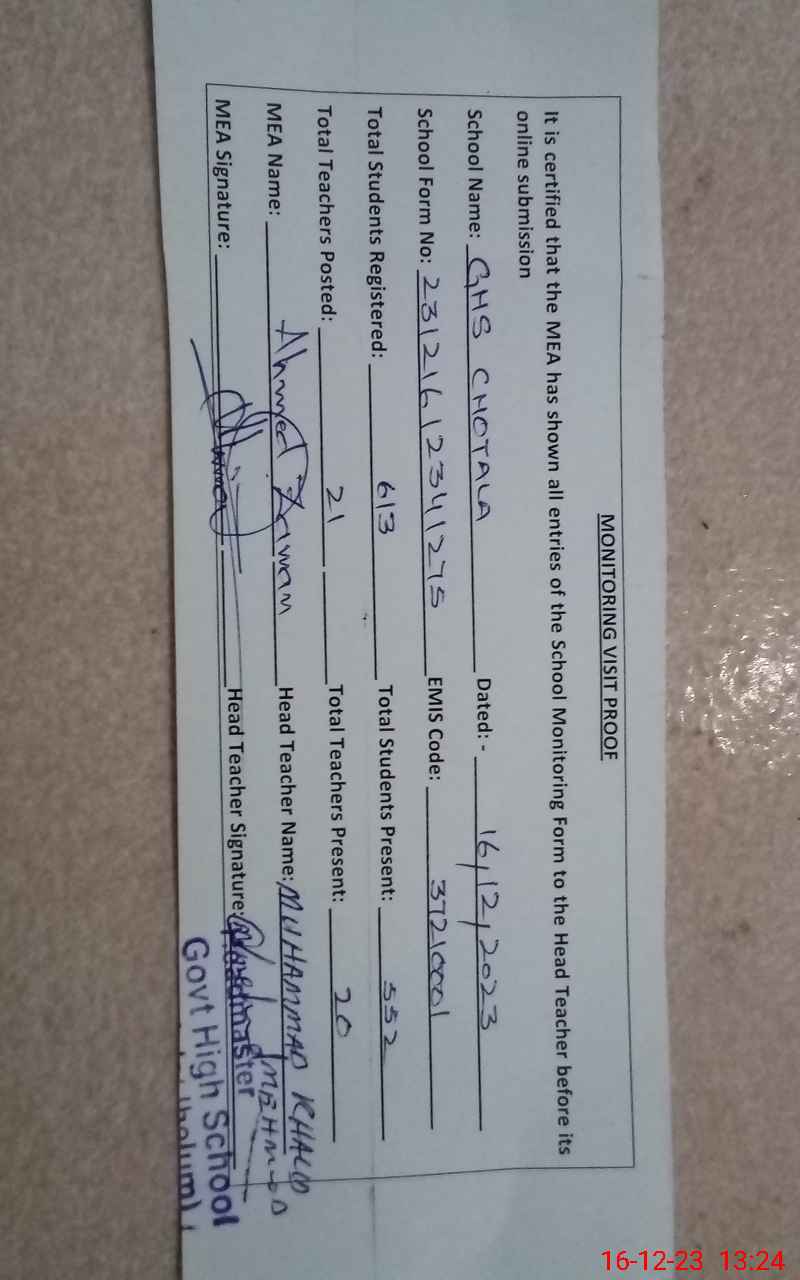 MONITORING VISIT PROOF
It is certified that the MEA has shown all entries of the School Monitoring Form to the Head Teacher before its
online submission
School Name: GHS CHOTALA Dated: - 16,12,2023
School Form No: 23121612341275 EMIS Code: 37210001
Total Students Registered: 613 Total Students Present: 552
Total Teachers Posted: 21 Total Teachers Present: 20
MEA Name: Ahmed Head Teacher Name: MUHAMMAD KHALID
MEHMOOD
MEA Signature: Head Teacher Signature:
Headmaster
Govt High School
16-12-23 13:24